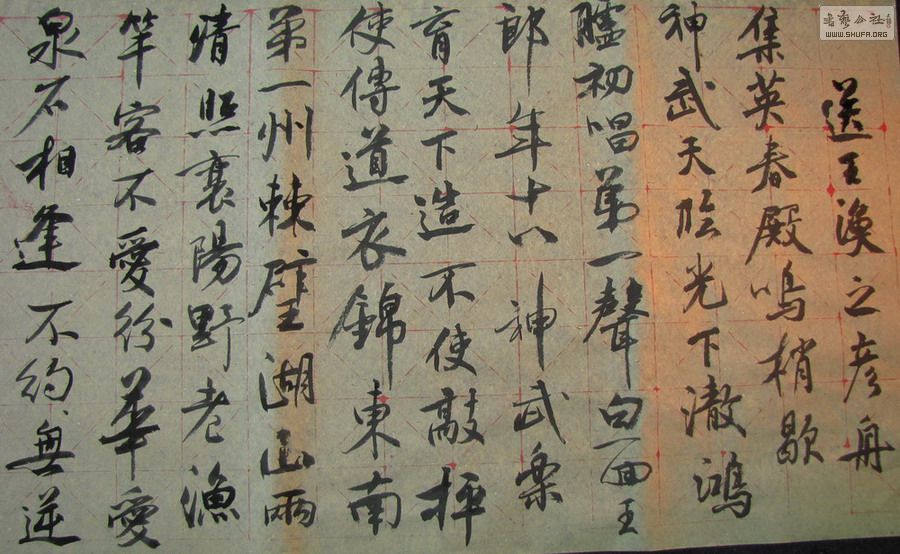 送王渙之彥舟
集英春殿鳴梢歇
神武天臨光下澈鴻
臚初唱第一聲白面王
郎年十八神武樂
育天下造不使敲抨
使傳道衣錦東南
第一州棘璧湖山兩
清照襄陽野老漁
竿客不愛紛華愛
泉石相逢不約、無逆
書藝公社
WWW.SHUFA.ORG